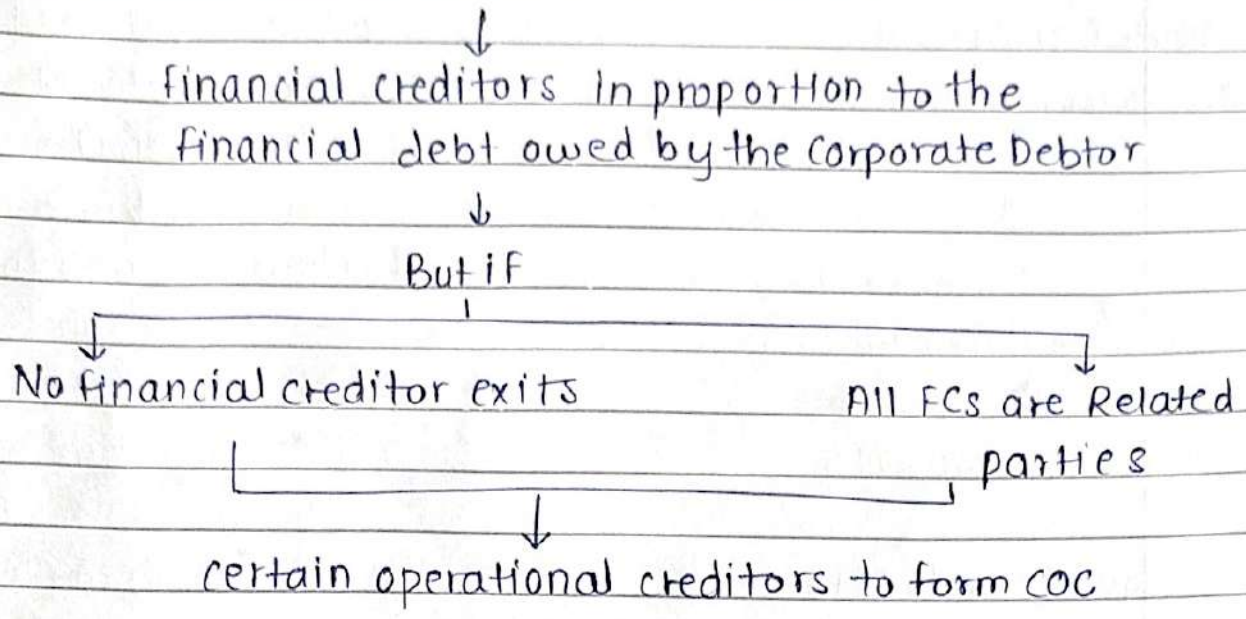 financial creditors in proportion to the
financial debt owed by the Corporate Debtor
But if
No financial creditor exits
All FCs are Related
parties
certain operational creditors to form COC